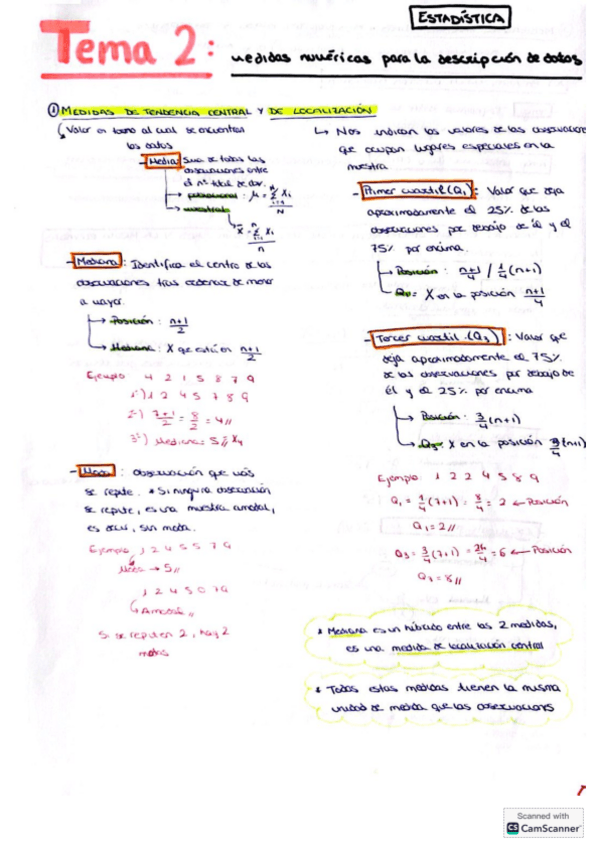 ESTADÍSTICA
Tema 2: medidas numéricas para la descripción de datos
① MEDIDAS DE TENDENCIA CENTRAL Y DE LOCALIZACIÓN
Valor en torno al cual se encuentran
los datos
- Media: Suma de todas las
observaciones entre
el nº total de
→ poblacional: μ = Σ Xi / N
→ muestral
x̄ = Σ Xi / n
- Mediana: Identifica el centro de las
observaciones tras ordenar de menor
a mayor.
→ Posición: n+1/2
→ Mediana: X que está en n+1/2
Ejemplo 4 2 1 5 8 7 9
1º) 1 2 4 5 7 8 9
2º) 7+1/2 = 8/2 = 4//
3º) Mediana = 5 // X4
- Moda: observación que más
se repite. * Si ninguna observación
se repite, es una muestra amodal,
es decir, sin moda.
Ejemplo 1 2 4 5 5 7 9
Moda → 5//
1 2 4 5 0 7 9
→ Amodal//
Si se repiten 2, hay 2
modas
↳ Nos indican los valores de las observaciones
que ocupan lugares especiales en la
muestra.
- Primer cuartil (Q1): Valor que deja
aproximadamente el 25% de las
observaciones por debajo de él y el
75% por encima.
→ Posición: n+1/4 / 1/4 (n+1)
→ Q1 = X en la posición n+1/4
- Tercer cuartil (Q3): Valor que
deja aproximadamente el 75%
de las observaciones por debajo de
él y el 25% por encima
→ Posición: 3/4 (n+1)
→ Q3 = X en la posición 3/4 (n+1)
Ejemplo 1 2 2 4 5 8 9
Q1 = 1/4 (7+1) = 8/4 = 2 ← Posición
Q1 = 2//
Q3 = 3/4 (7+1) = 24/4 = 6 ← Posición
Q3 = 8//
* Mediana es un híbrido entre las 2 medidas,
es una medida de localización central
* Todas estas medidas tienen la misma
unidad de medida que las observaciones
1
Scanned with
CS CamScanner